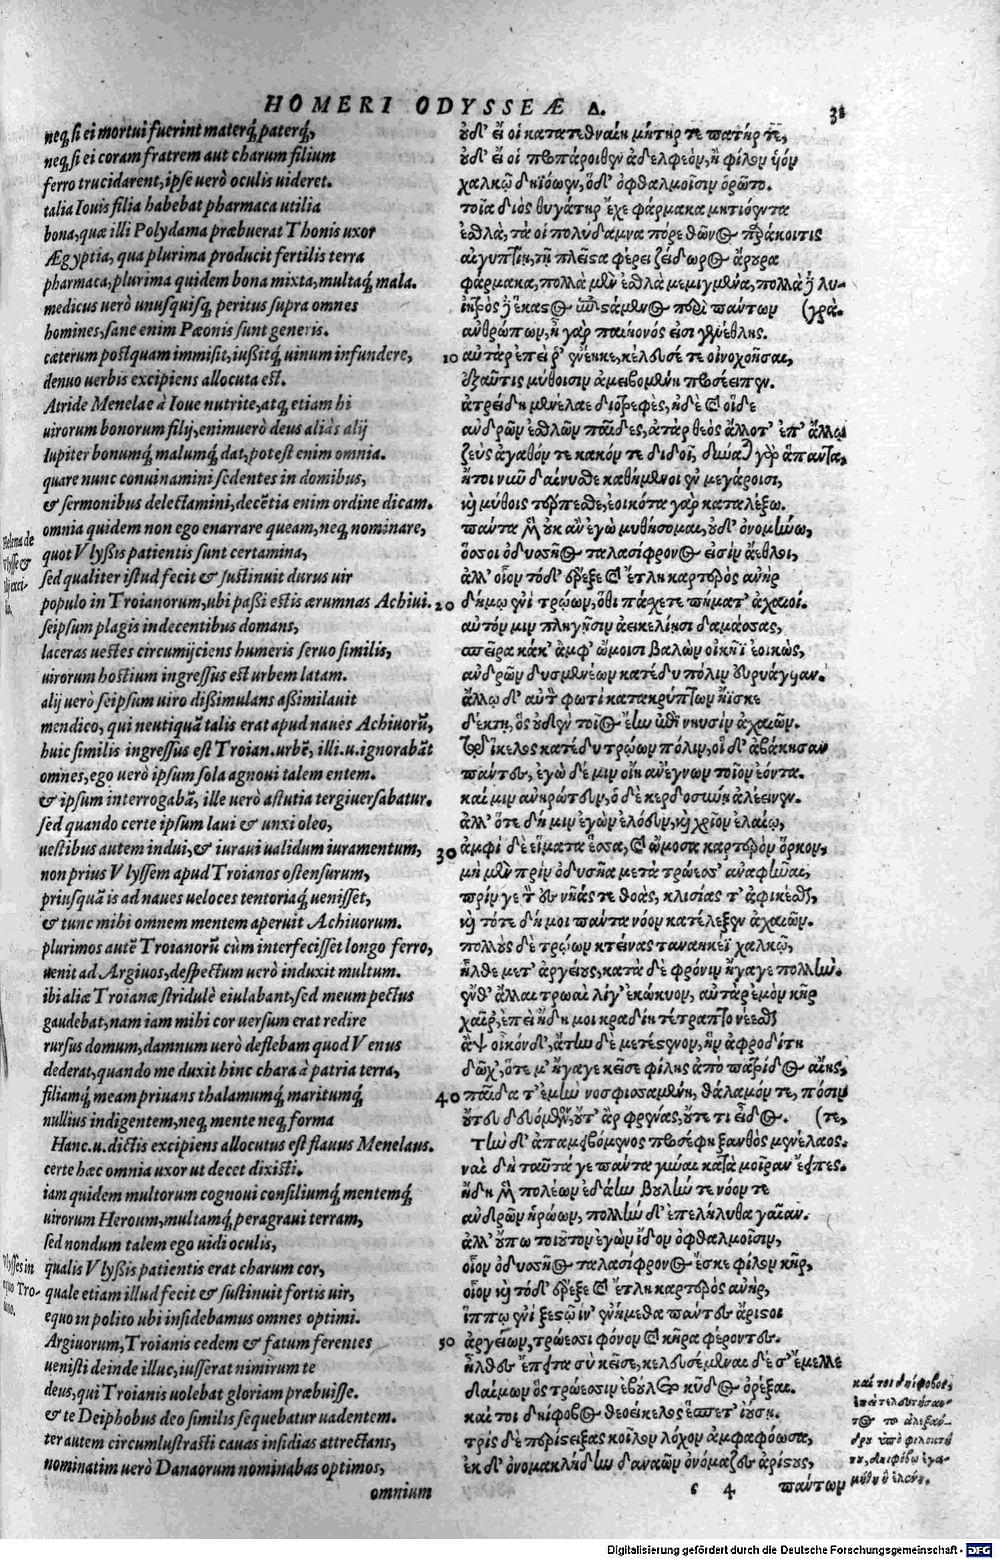 HOMERI ODYSSEÆ Δ. 31
neq; si ei mortui fuerint materq́; paterq́;,
neq; si ei coram fratrem aut charum filium
ferro trucidarent, ipse uerò oculis uideret.
talia Iouis filia habebat pharmaca utilia
bona, quæ illi Polydama præbuerat Thonis uxor
Ægyptia, qua plurima producit fertilis terra
pharmaca, plurima quidem bona mixta, multaq́; mala.
medicus uerò unusquisq; peritus supra omnes
homines, sane enim Pæonis sunt generis.
cæterum postquam immisit, iußitq́; uinum infundere,
denuo uerbis excipiens allocuta est.
Atride Menelae à Ioue nutrite, atq; etiam hi
uirorum bonorum filij, enimuerò deus aliàs alij
Iupiter bonumq́; malumq́; dat, potest enim omnia.
quare nunc conuinamini sedentes in domibus,
& sermonibus delectamini, decẽtia enim ordine dicam.
omnia quidem non ego enarrare queam, neq; nominare,
quot Vlyßis patientis sunt certamina,
sed qualiter istud fecit & sustinuit durus uir
populo in Troianorum, ubi paßi estis ærumnas Achiui.
seipsum plagis indecentibus domans,
laceras uestes circumijciens humeris seruo similis,
uirorum hostium ingressus est urbem latam.
alij uerò seipsum uiro dißimulans aßimilauit
mendico, qui neutiquã talis erat apud naues Achiuorũ,
huic similis ingressus est Troian. urbẽ, illi .u. ignorabãt
omnes, ego uerò ipsum sola agnoui talem entem.
& ipsum interrogabã, ille uerò astutia tergiuersabatur.
sed quando certe ipsum laui & unxi oleo,
uestibus autem indui, & iuraui ualidum iuramentum,
non prius Vlyssem apud Troianos ostensurum,
priusquã is ad naues ueloces tentoriaq́; uenisset,
& tunc mihi omnem mentem aperuit Achiuorum.
plurimos autẽ Troianorũ cùm interfecisset longo ferro,
uenit ad Argiuos, despectum uerò induxit multum.
ibi aliæ Troianæ stridulè eiulabant, sed meum pectus
gaudebat, nam iam mihi cor uersum erat redire
rursus domum, damnum uerò deflebam quod Venus
dederat, quando me duxit hinc chara à patria terra,
filiamq́; meam priuans thalamumq́; maritumq́;
nullius indigentem, neq; mente neq; forma
Hanc .u. dictis excipiens allocutus est flauus Menelaus.
certe hæc omnia uxor ut decet dixisti.
iam quidem multorum cognoui consiliumq́; mentemq́;
uirorum Heroum, multamq́; peragraui terram,
sed nondum talem ego uidi oculis,
qualis Vlyßis patientis erat charum cor,
quale etiam illud fecit & sustinuit fortis uir,
equo in polito ubi insidebamus omnes optimi.
Argiuorum, Troianis cedem & fatum ferentes
uenisti deinde illuc, iusserat nimirum te
deus, qui Troianis uolebat gloriam præbuisse.
& te Deiphobus deo similis sequebatur uadentem.
ter autem circumlustrasti cauas insidias attrectans,
nominatim uerò Danaorum nominabas optimos,
omnium
Helena de
Vlysse &
Vlysses in
equo Tro-
iano.
οὐδ' εἴ οἱ κατατεθναίη μήτηρ τε πατήρ τε,
οὐδ' εἴ οἱ προπάροιθεν ἀδελφεὸν, ἢ φίλον ὑιὸν
χαλκῷ δηϊόωεν, ὁ δ' ὀφθαλμοῖσιν ὁρῷτο.
τοῖα διὸς θυγάτηρ ἔχε φάρμακα μητιόεντα
ἐσθλὰ, τά οἱ πολύδαμνα πόρε θῶνος παράκοιτις
αἰγυπτίη, τῇ πλεῖστα φέρει ζείδωρος ἄρουρα
φάρμακα, πολλὰ μὲν ἐσθλὰ μεμιγμένα, πολλὰ δὲ λυ-
ἰητρὸς δὲ ἕκαστος ἐπιστάμενος περὶ πάντων (γρά.
ἀνθρώπων, ἦ γὰρ παιήονός εἰσι γενέθλης.
10 αὐτὰρ ἐπεί ῥ' ἐνέηκε, κέλευσέ τε οἰνοχοῆσαι,
ἐξαῦτις μύθοισιν ἀμειβομένη προσέειπεν.
ἀτρείδη μενέλαε διοτρεφὲς, ἠδὲ καὶ οἵδε
ἀνδρῶν ἐσθλῶν παῖδες, ἀτὰρ θεὸς ἄλλοτ' ἐπ' ἄλλῳ
ζεὺς ἀγαθόν τε κακόν τε διδοῖ, δύναται γὰρ ἅπαντα,
ἤτοι νῦν δαίνυσθε καθήμενοι ἐν μεγάροισι,
καὶ μύθοις τέρπεσθε, ἐοικότα γὰρ καταλέξω.
πάντα μὲν οὐκ ἂν ἐγὼ μυθήσομαι, οὐδ' ὀνομήνω,
ὅσσοι ὀδυσσῆος ταλασίφρονος εἰσὶν ἄεθλοι,
ἀλλ' οἷον τόδ' ἔρεξε καὶ ἔτλη καρτερὸς ἀνὴρ
20 δήμῳ ἐνὶ τρώων, ὅθι πάσχετε πήματ' ἀχαιοί.
αὐτόν μιν πληγῇσιν ἀεικελίῃσι δαμάσσας,
σπεῖρα κάκ' ἀμφ' ὤμοισι βαλὼν οἰκῆϊ ἐοικὼς,
ἀνδρῶν δυσμενέων κατέδυ πόλιν εὐρυάγυιαν.
ἄλλῳ δ' αὐτὸν φωτὶ κατακρύπτων ἤϊσκε
δέκτῃ, ὃς οὐδὲν τοῖος ἔην ἐπὶ νηυσὶν ἀχαιῶν.
τῷ ἴκελος κατέδυ τρώων πόλιν, οἱ δ' ἀβάκησαν
πάντες, ἐγὼ δέ μιν οἴη ἀνέγνων τοῖον ἐόντα.
καί μιν ἀνηρώτευν, ὁ δὲ κερδοσύνῃ ἀλέεινεν.
ἀλλ' ὅτε δή μιν ἐγὼν ἐλόευν, καὶ χρῖον ἐλαίῳ,
30 ἀμφὶ δὲ εἵματα ἕσσα, καὶ ὤμοσα καρτερὸν ὅρκον,
μὴ μὲν πρὶν ὀδυσῆα μετὰ τρώεσσ' ἀναφῆναι,
πρίν γε τὸν ἐς νῆάς τε θοὰς, κλισίας τ' ἀφικέσθαι,
καὶ τότε δή μοι πάντα νόον κατέλεξεν ἀχαιῶν.
πολλοὺς δὲ τρώων κτείνας ταναήκεϊ χαλκῷ,
ἦλθε μετ' ἀργείους, κατὰ δὲ φρόνιν ἤγαγε πολλήν.
ἔνθ' ἄλλαι τρωαὶ λίγ' ἐκώκυον, αὐτὰρ ἐμὸν κῆρ
χαῖρ', ἐπεὶ ἤδη μοι κραδίη τέτραπτο νέεσθαι
ἂψ οἶκόνδ', ἄτην δὲ μετέστενον, ἣν ἀφροδίτη
δῶχ', ὅτε μ' ἤγαγε κεῖσε φίλης ἀπὸ πατρίδος αἴης,
40 παῖδα τ' ἐμὴν νοσφισσαμένη, θάλαμόν τε, πόσιν
οὔτευ δευόμενον, οὔτ' ἂρ φρένας, οὔτε τι εἶδος. (τε,
τὴν δ' ἀπαμειβόμενος προσέφη ξανθὸς μενέλαος.
ναὶ δὴ ταῦτά γε πάντα γύναι κατὰ μοῖραν ἔειπες.
ἤδη μὲν πολέων ἐδάην βουλήν τε νόον τε
ἀνδρῶν ἡρώων, πολλὴν δ' ἐπελήλυθα γαῖαν.
ἀλλ' οὔπω τοιοῦτον ἐγὼν ἴδον ὀφθαλμοῖσιν,
οἷον ὀδυσσῆος ταλασίφρονος ἔσκε φίλον κῆρ,
οἷον καὶ τόδ' ἔρεξε καὶ ἔτλη καρτερὸς ἀνὴρ,
ἵππῳ ἐνὶ ξεστῷ ἵν' ἐνήμεθα πάντες ἄριστοι
50 ἀργείων, τρώεσσι φόνον καὶ κῆρα φέροντες.
ἦλθες ἔπειτα σὺ κεῖσε, κελευσέμεναι δέ σ' ἔμελλε
δαίμων ὃς τρώεσσιν ἐβούλετο κῦδος ὀρέξαι.
καί τοι δηίφοβος θεοείκελος ἕσπετ' ἰούσῃ.
τρὶς δὲ περίστειξας κοῖλον λόχον ἀμφαφόωσα,
ἐκ δ' ὀνομακλήδην δαναῶν ὀνόμαζες ἀρίστους,
ς 4 πάντων
καί τοι δηίφοβος,
Digitalisierung gefördert durch die Deutsche Forschungsgemeinschaft - DFG